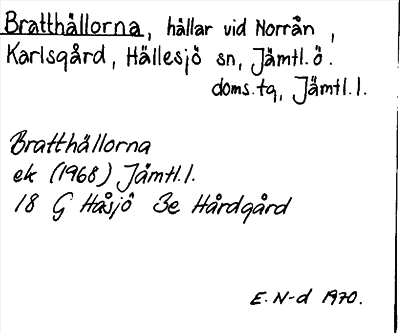 Bratthällorna, hällar vid Norrån,
Karlsgård, Hällesjö sn, Jämtl.ö.
doms.tg, Jämtl.l.
Bratthällorna
ek (1968) Jämtl.l.
18 G Håsjö 3e Hårdgård
E. N-d 1970.